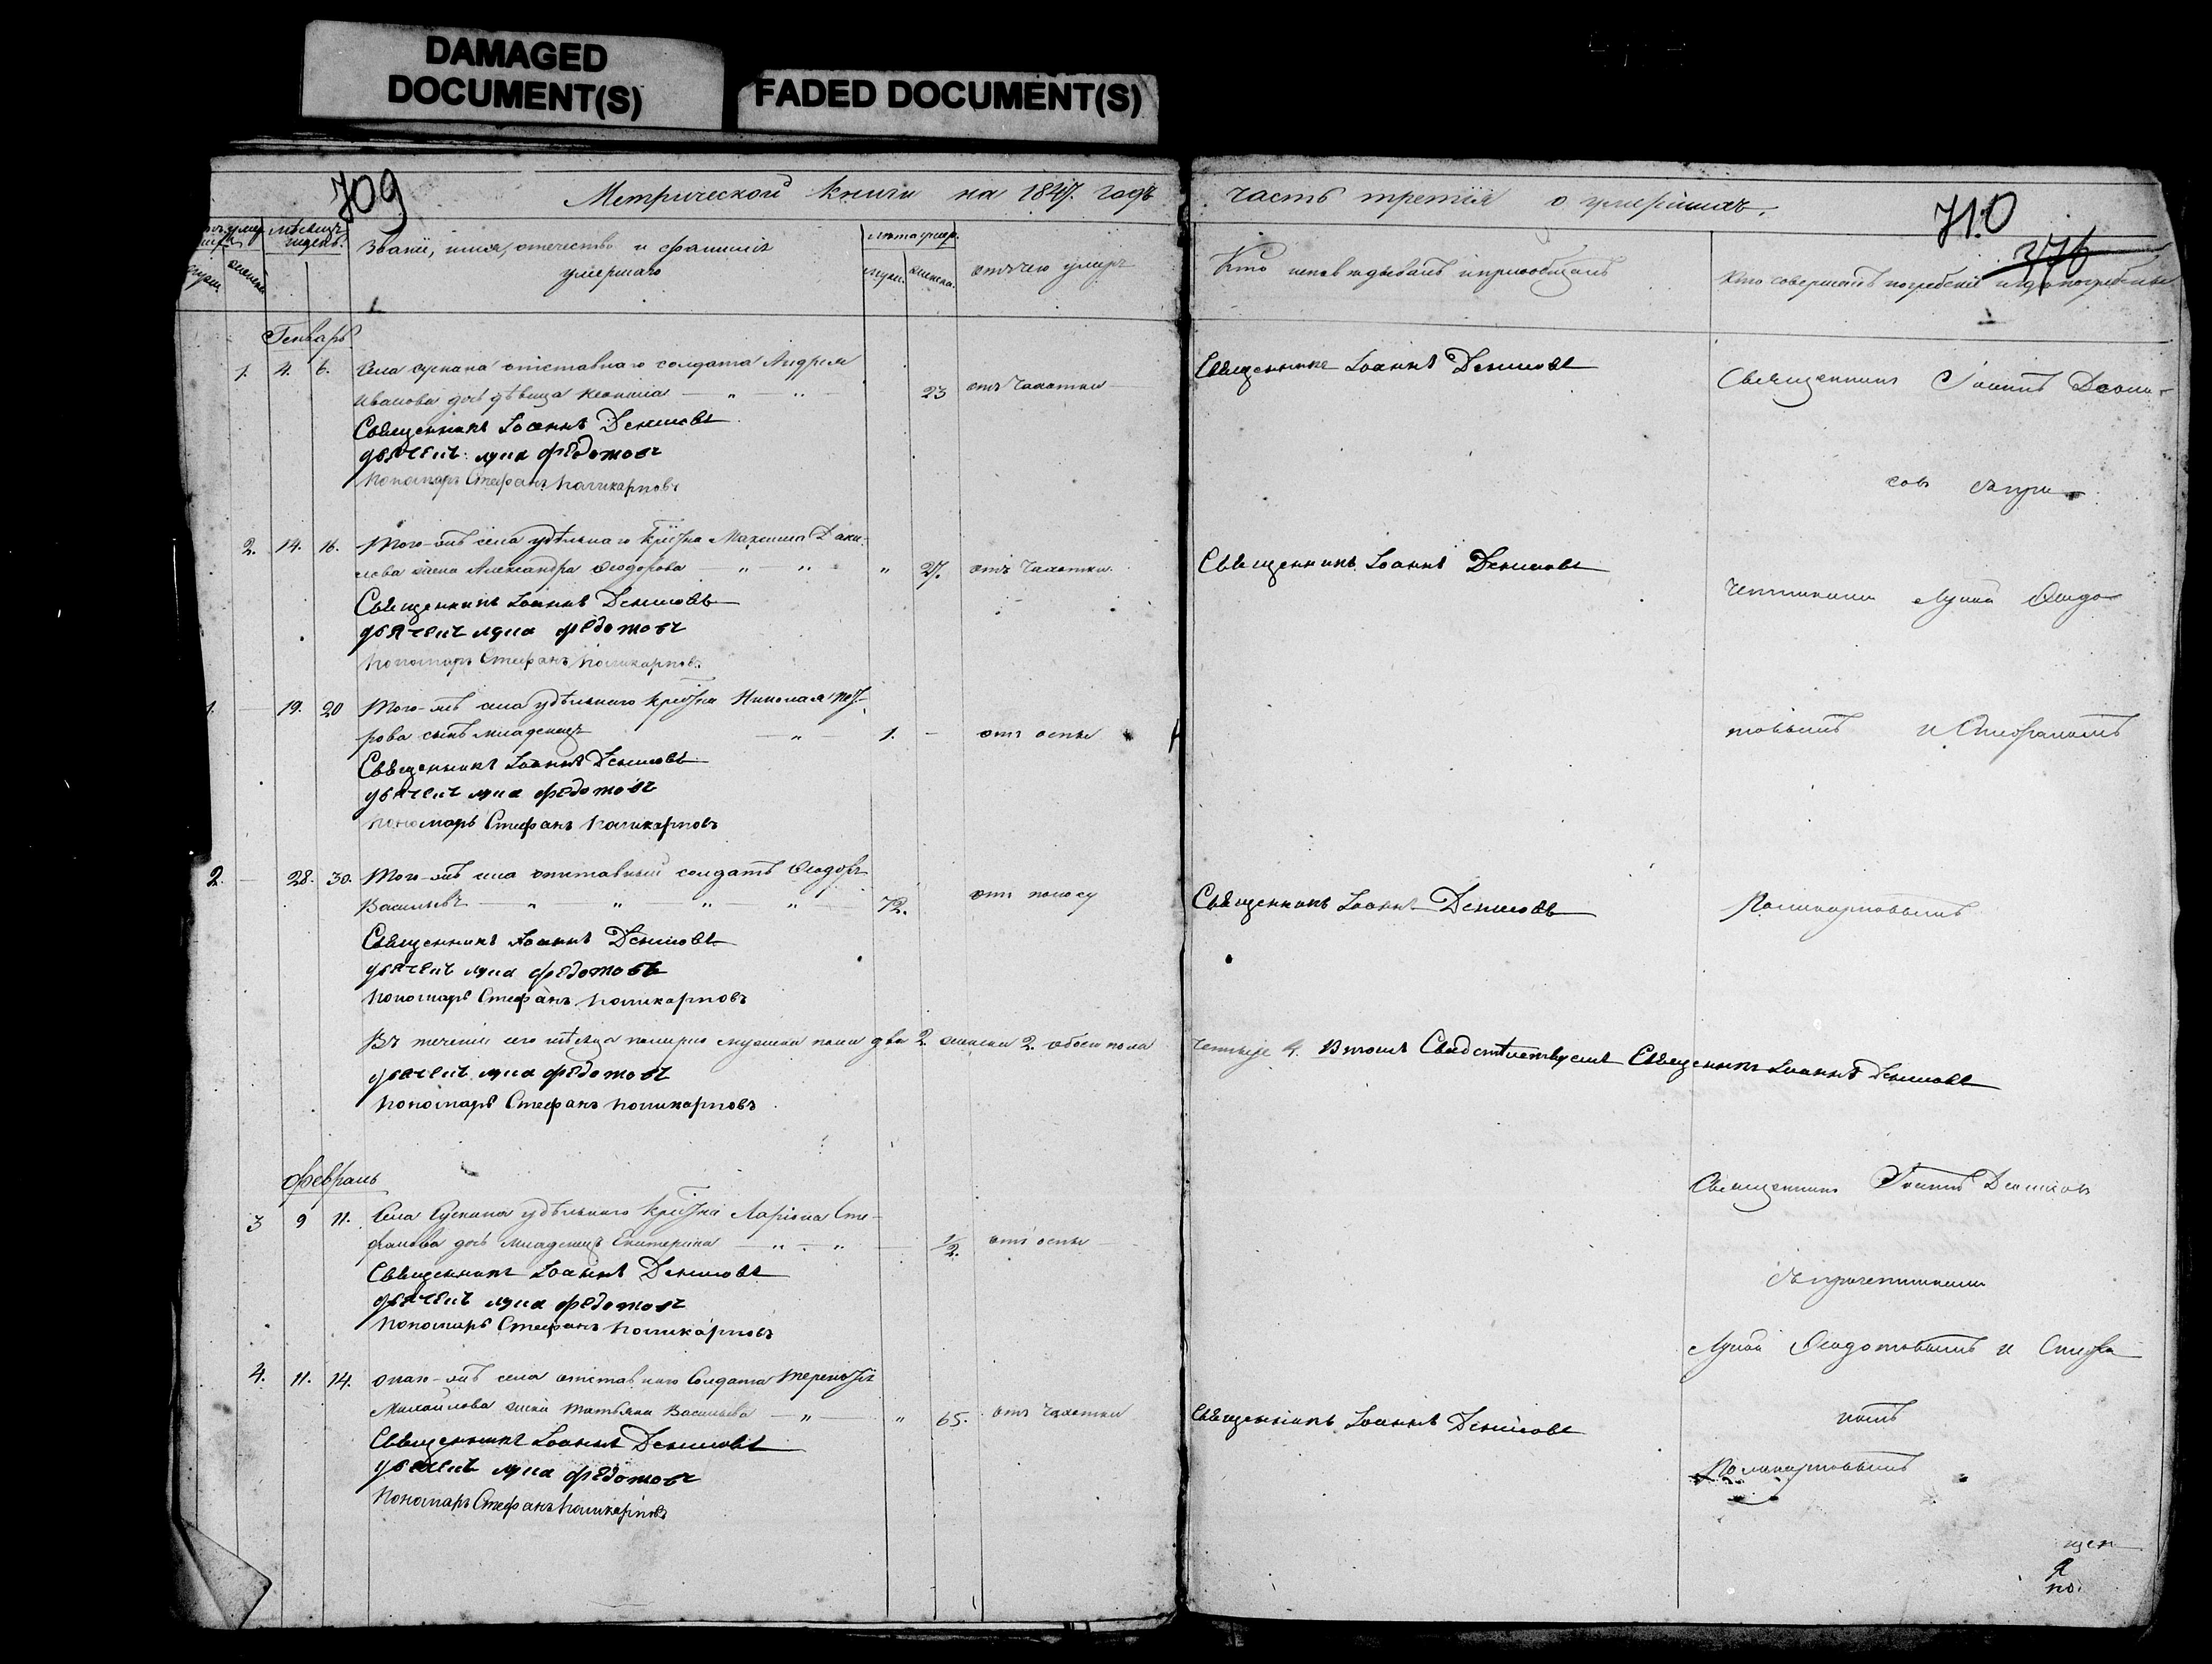 DAMAGED
DOCUMENT(S)
FADED DOCUMENT(S)
709
Метрической книги на 1847. годъ
часть третія о умершихъ.
710
376
мѣсяцъ
Званіе, имя, отечество и фамилія
умершаго
лѣта умер.
муж. женска.
отъ чего умеръ
Кто исповѣдывалъ и приобщалъ
Кто совершалъ погребеніе и гдѣ погребены
Генварь
1. 4. 6. Села отставнаго солдата Андрея
Иванова дочь дѣвица 23 отъ чахотки
Священникъ Іоаннъ Денисовъ
дьячекъ лука федотовъ
пономарь Стефанъ поликарповъ
Священникъ Іоаннъ Денисовъ
Священникъ Іоаннъ Дени-
совъ съ при-
2. 14. 16. Того-жъ села удѣльнаго крестьянина Максима Дани-
лова жена Александра Ѳеодорова 27. отъ чахотки.
Священникъ Іоаннъ Денисовъ
дьячекъ лука федотовъ
пономарь Стефанъ поликарповъ
Священникъ Іоаннъ Денисовъ
четниками Лукой Ѳедо-
1. 19. 20 Того-жъ села удѣльнаго крестьянина Николая Пет-
рова сынъ младенецъ 1. отъ оспы
Священникъ Іоаннъ Денисовъ
дьячекъ лука федотовъ
пономарь Стефанъ поликарповъ
товымъ и Стефаномъ
2. 28. 30. Того-жъ села отставный солдатъ Ѳеодоръ
Васильевъ 72. отъ поносу
Священникъ Іоаннъ Денисовъ
дьячекъ лука федотовъ
пономарь Стефанъ поликарповъ
Священникъ Іоаннъ Денисовъ
Поликарповымъ
Въ теченіи сего мѣсяца померло мужска пола два 2. женска 2. обоего пола четыре 4. Въ томъ Свидѣтельствуемъ Священникъ Іоаннъ Денисовъ
дьячекъ лука федотовъ
пономарь Стефанъ поликарповъ
февраль
3 9 11. Села удѣльнаго крестьянина Ларіона Сте-
фанова дочь младенецъ Екатерина 1/2. отъ оспы
Священникъ Іоаннъ Денисовъ
дьячекъ лука федотовъ
пономарь Стефанъ поликарповъ
Священникъ Іоаннъ Денисовъ
съ причетниками
Лукой Ѳедотовымъ и Стефа-
4. 11. 14. Онаго-жъ села отставнаго Солдата Терентія
Михайлова жена Татьяна Васильева 65. отъ чахотки
Священникъ Іоаннъ Денисовъ
дьячекъ лука федотовъ
пономарь Стефанъ поликарповъ
Священникъ Іоаннъ Денисовъ
номъ
Поликарповымъ
щен
по.